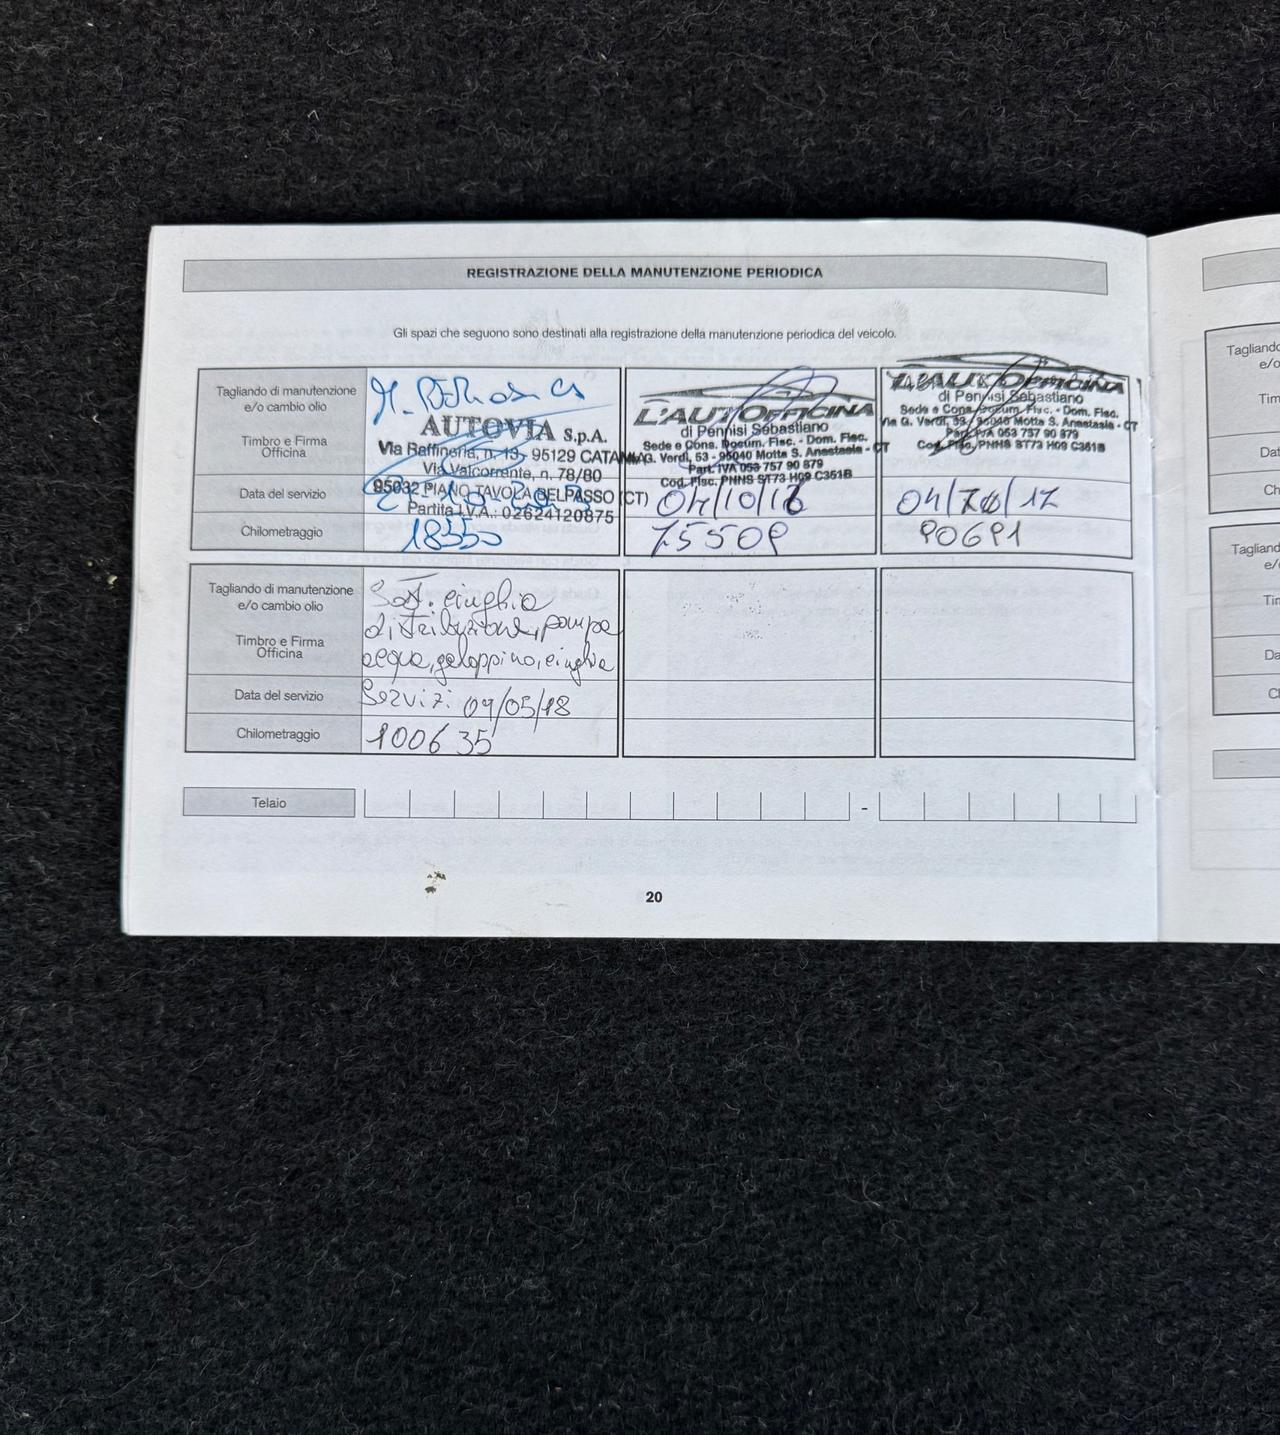 REGISTRAZIONE DELLA MANUTENZIONE PERIODICA
Gli spazi che seguono sono destinati alla registrazione della manutenzione periodica del veicolo.
Tagliando di manutenzione
e/o cambio olio
Timbro e Firma
Officina
Data del servizio
Chilometraggio
AUTOVIA S.p.A.
Via Raffineria, n. 13 - 95129 CATANIA
Via Valcorrente, n. 78/80
95032 PIANO TAVOLA BELPASSO (CT)
Partita I.V.A.: 02624120875
18350
L'AUTOFFICINA
di Pennisi Sebastiano
Sede e Cons. Docum. Fisc. - Dom. Fisc.
Via G. Verdi, 53 - 95040 Motta S. Anastasia - CT
Part. IVA 053 757 90 879
Cod. Fisc. PNNS ST73 H09 C351B
04/10/16
75509
L'AUTOFFICINA
di Pennisi Sebastiano
Sede e Cons. Docum. Fisc. - Dom. Fisc.
Via G. Verdi, 53 - 95040 Motta S. Anastasia - CT
Part. IVA 053 757 90 879
Cod. Fisc. PNNS ST73 H09 C351B
04/10/17
90691
Tagliando di manutenzione
e/o cambio olio
Timbro e Firma
Officina
Data del servizio
Chilometraggio
Sost. cinghia
distribuzione, pompa
acqua, galoppino, cinghia
Servizi 09/05/18
100635
Telaio
-
20
Tagliando
e/o